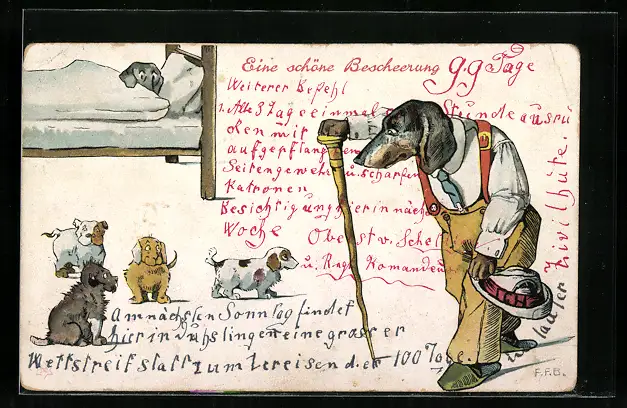 Eine schöne Bescheerung 99 Tage
Weiterer Befehl
1. Alle 3 Tage einmal Stunde ausrü
cken mit
aufgepflanztem
Seitengewehr u. scharfen
Patronen
Besichtigung hier in nächs
Woche Oberst v. Schel
u. Regs Komandeur
Zivilhüte.
lauter
Am nächsten Sonntag findet
hier in duhslingen eine grosser
Wettstreit statt zum bereisen d. er 100 Tage.
F.F.B.